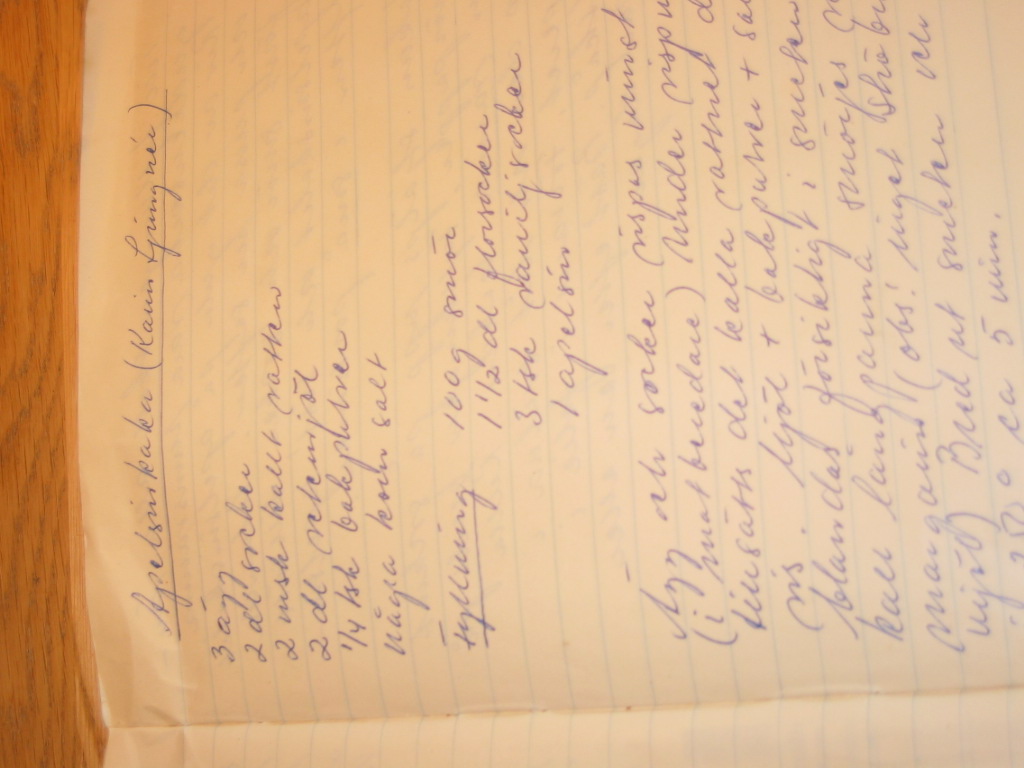 Apelsinkaka (Karin Ljungnér)
3 ägg
2 dl socker
2 msk kallt vatten
2 dl vetemjöl
1/4 tsk bakpulver
några korn salt
Fyllning 100 g smör
1 1/2 dl florsocker
3 tsk vaniljsocker
1 apelsin
Ägg och socker vispas minst
(i matberedare) Under vispn
tillsätts det kalla vattnet
mjöl + bakpulver + sa
blandas försiktigt i smeten
kall långpanna smörjes
margarin (obs! inget ströbr
mjöl) Bred ut smeten och
i 250° ca 5 min.